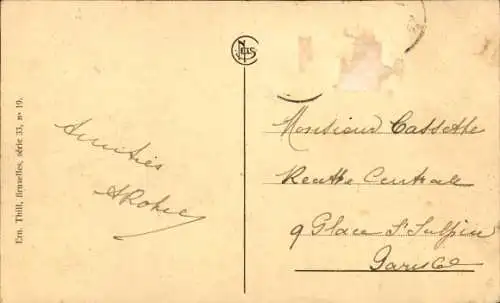 Ern. Thill, Bruxelles, série 33, nº 19.
NELS
Amitiés
Monsieur Cassethe
Centrale
9 Place St Sulpice
Paris 6e